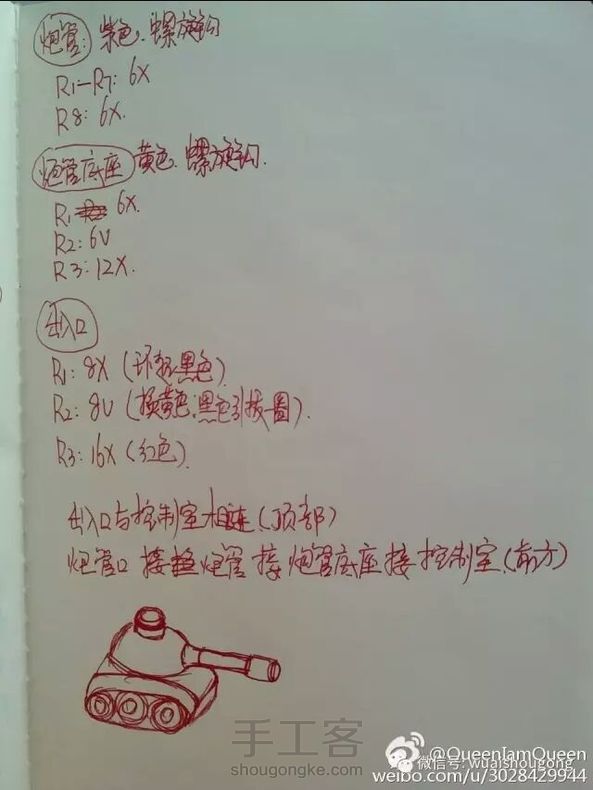 炮管: 紫色. 螺旋钩
R1—R7: 6X
R8: 6X.
炮管底座 黄色. 螺旋钩.
R1 6X.
R2: 6V
R3: 12X.
出入口
R1: 8X (环起.黑色)
R2: 8V (换黄色.黑色引拔一圈).
R3: 16X (红色).
出入口与控制室相连.(顶部)
炮管口 接 炮管 接 炮管底座接 控制室.(前方)
手工客
shougongke.com
@QueenIamQueen
微信号: wuaishougong
weibo.com/u/3028429944